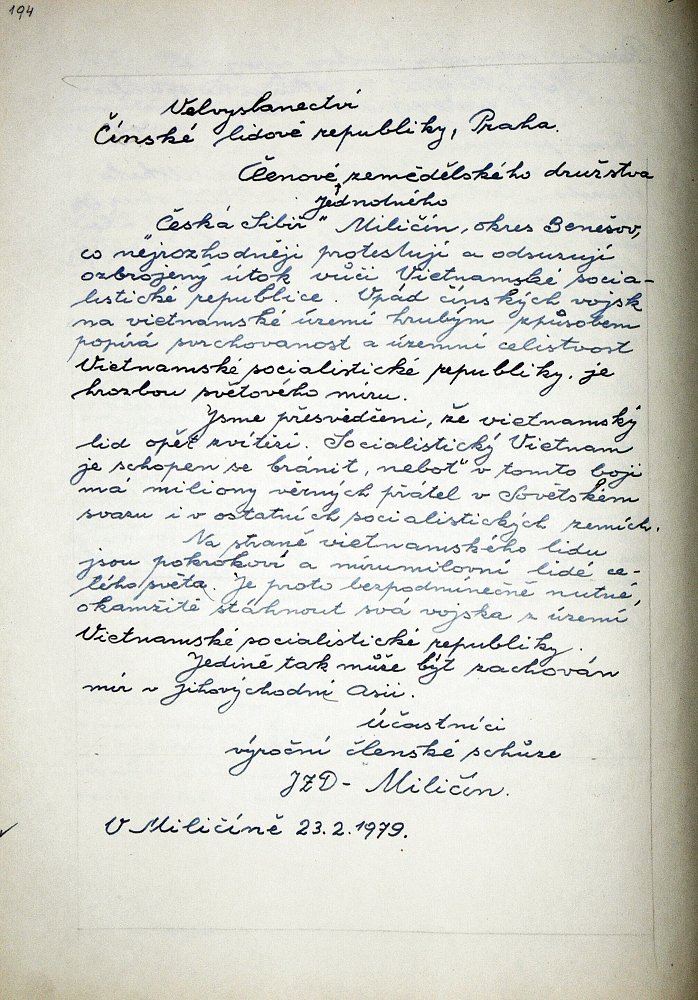 194
Velvyslanectví
Čínské lidové republiky, Praha.
Členové zemědělského družstva
Jednotného
„Česká Sibiř" Miličín, okres Benešov,
co nejrozhodněji protestují a odsusují
ozbrojený útok vůči Vietnamské socia-
listické republice. Vpád čínských vojsk
na vietnamské území hrubým způsobem
popírá svrchovanost a územní celistvost
Vietnamské socialistické republiky, je
hrozbou světového míru.
Jsme přesvědčeni, že vietnamský
lid opět zvítězí. Socialistický Vietnam
je schopen se bránit, neboť v tomto boji
má miliony věrných přátel v Sovětském
svazu i v ostatních socialistických zemích.
Na straně vietnamského lidu
jsou pokrokoví a mírumilovní lidé ce-
lého světa. Je proto bezpodmínečně nutné,
okamžitě stáhnout svá vojska z území
Vietnamské socialistické republiky.
Jedině tak může být zachován
mír v Jihovýchodní Asii.
Účastníci
výroční členské schůze
JZD - Miličín.
V Miličíně 23.2.1979.